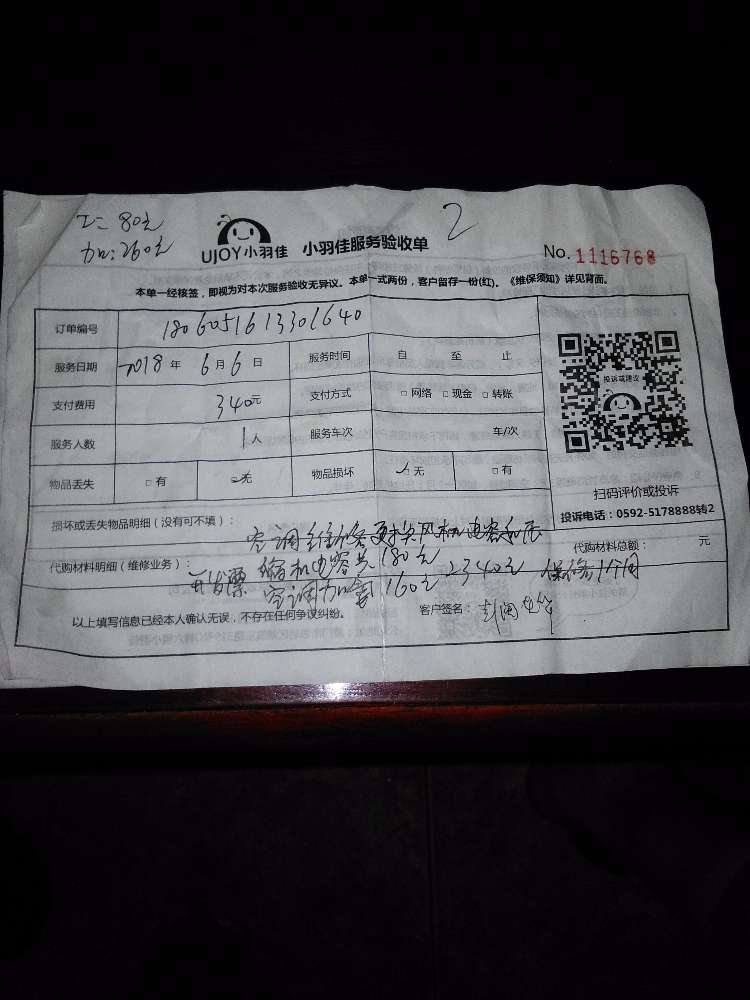 工=80元
加:260元
2
UJOY小羽佳 小羽佳服务验收单
No. 1116768
本单一经接签，即视为对本次服务验收无异议。本单一式两份，客户留存一份(红)。《维保须知》详见背面。
订单编号 180605161330
服务日期 2018 年 6 月 6 日 服务时间 自 至 止
支付费用 340元 支付方式 □网络 □现金 □转账
服务人数 1人 服务车次 车/次
物品丢失 □有 无 物品损坏 无 □有
投诉或建议
扫码评价或投诉
投诉电话：0592-5178888转2
损坏或丢失物品明细（没有可不填）： 空调维修更换风机电容和压
代购材料明细（维修业务）： 缩机电容共180元
代购材料总额： 元
开发票 空调加氟160元 340元 保修1个月
以上填写信息已经本人确认无误，不存在任何争议纠纷。 客户签名：